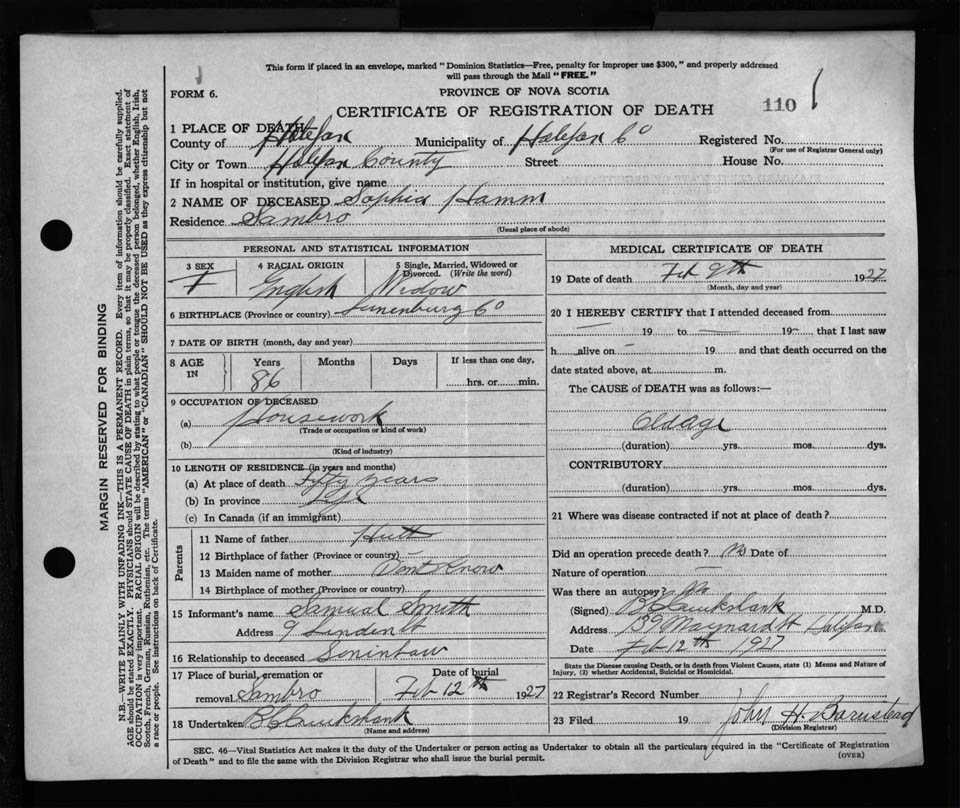 This form if placed in an envelope, marked "Dominion Statistics—Free, penalty for improper use $300," and properly addressed
will pass through the Mail "FREE."
FORM 6.
PROVINCE OF NOVA SCOTIA
CERTIFICATE OF REGISTRATION OF DEATH
110
1 PLACE OF DEATH
County of Halifax Municipality of Halifax Co Registered No.
(For use of Registrar General only)
City or Town Halifax County Street House No.
If in hospital or institution, give name
2 NAME OF DECEASED Sophia Hamm
Residence Sambro
(Usual place of abode)
PERSONAL AND STATISTICAL INFORMATION
3 SEX F
4 RACIAL ORIGIN English
5 Single, Married, Widowed or Divorced. (Write the word) Widow
6 BIRTHPLACE (Province or country) Lunenburg Co
7 DATE OF BIRTH (month, day and year)
8 AGE IN Years Months Days If less than one day,
86 hrs. or min.
9 OCCUPATION OF DECEASED
(a) Housework
(Trade or occupation or kind of work)
(b)
(Kind of industry)
10 LENGTH OF RESIDENCE (in years and months)
(a) At place of death Fifty years
(b) In province Life
(c) In Canada (if an immigrant)
Parents
11 Name of father Hutt
12 Birthplace of father (Province or country)
13 Maiden name of mother Dont Know
14 Birthplace of mother (Province or country)
15 Informant's name Samuel Smith
Address 9 Linden St
16 Relationship to deceased Soninlaw
17 Place of burial, cremation or removal Sambro
Date of burial Feb 12th 1927
18 Undertaker
(Name and address)
MEDICAL CERTIFICATE OF DEATH
19 Date of death Feb 9th 1927
(Month, day and year)
20 I HEREBY CERTIFY that I attended deceased from
— 19 to — 19— that I last saw
h alive on — 19 and that death occurred on the
date stated above, at m.
The CAUSE of DEATH was as follows:—
Oldage
(duration) yrs. mos. dys.
CONTRIBUTORY
(duration) yrs. mos. dys.
21 Where was disease contracted if not at place of death?
Did an operation precede death? No Date of
Nature of operation —
Was there an autopsy? No
(Signed) M.D.
Address 139 Maynard St Halifax
Date Feb 12th 1927
State the Disease causing Death, or in death from Violent Causes, state (1) Means and Nature of
Injury, (2) whether Accidental, Suicidal or Homicidal.
22 Registrar's Record Number
23 Filed 19 John H. Barnstead
(Division Registrar)
SEC. 46—Vital Statistics Act makes it the duty of the Undertaker or person acting as Undertaker to obtain all the particulars required in the "Certificate of Registration
of Death" and to file the same with the Division Registrar who shall issue the burial permit.
(OVER)
MARGIN RESERVED FOR BINDING
N.B.—WRITE PLAINLY WITH UNFADING INK—THIS IS A PERMANENT RECORD. Every item of information should be carefully supplied.
AGE should be stated EXACTLY. PHYSICIANS should STATE CAUSE OF DEATH in plain terms, so that it may be properly classified. Exact statement of
OCCUPATION is very important. RACIAL ORIGIN will be described by stating to what people or tongue the deceased person belonged, whether English, Irish,
Scotch, French, German, Russian, Ruthenian, etc. The terms "AMERICAN" or "CANADIAN" SHOULD NOT BE USED as they express citizenship but not
a race or people. See instructions on back of Certificate.